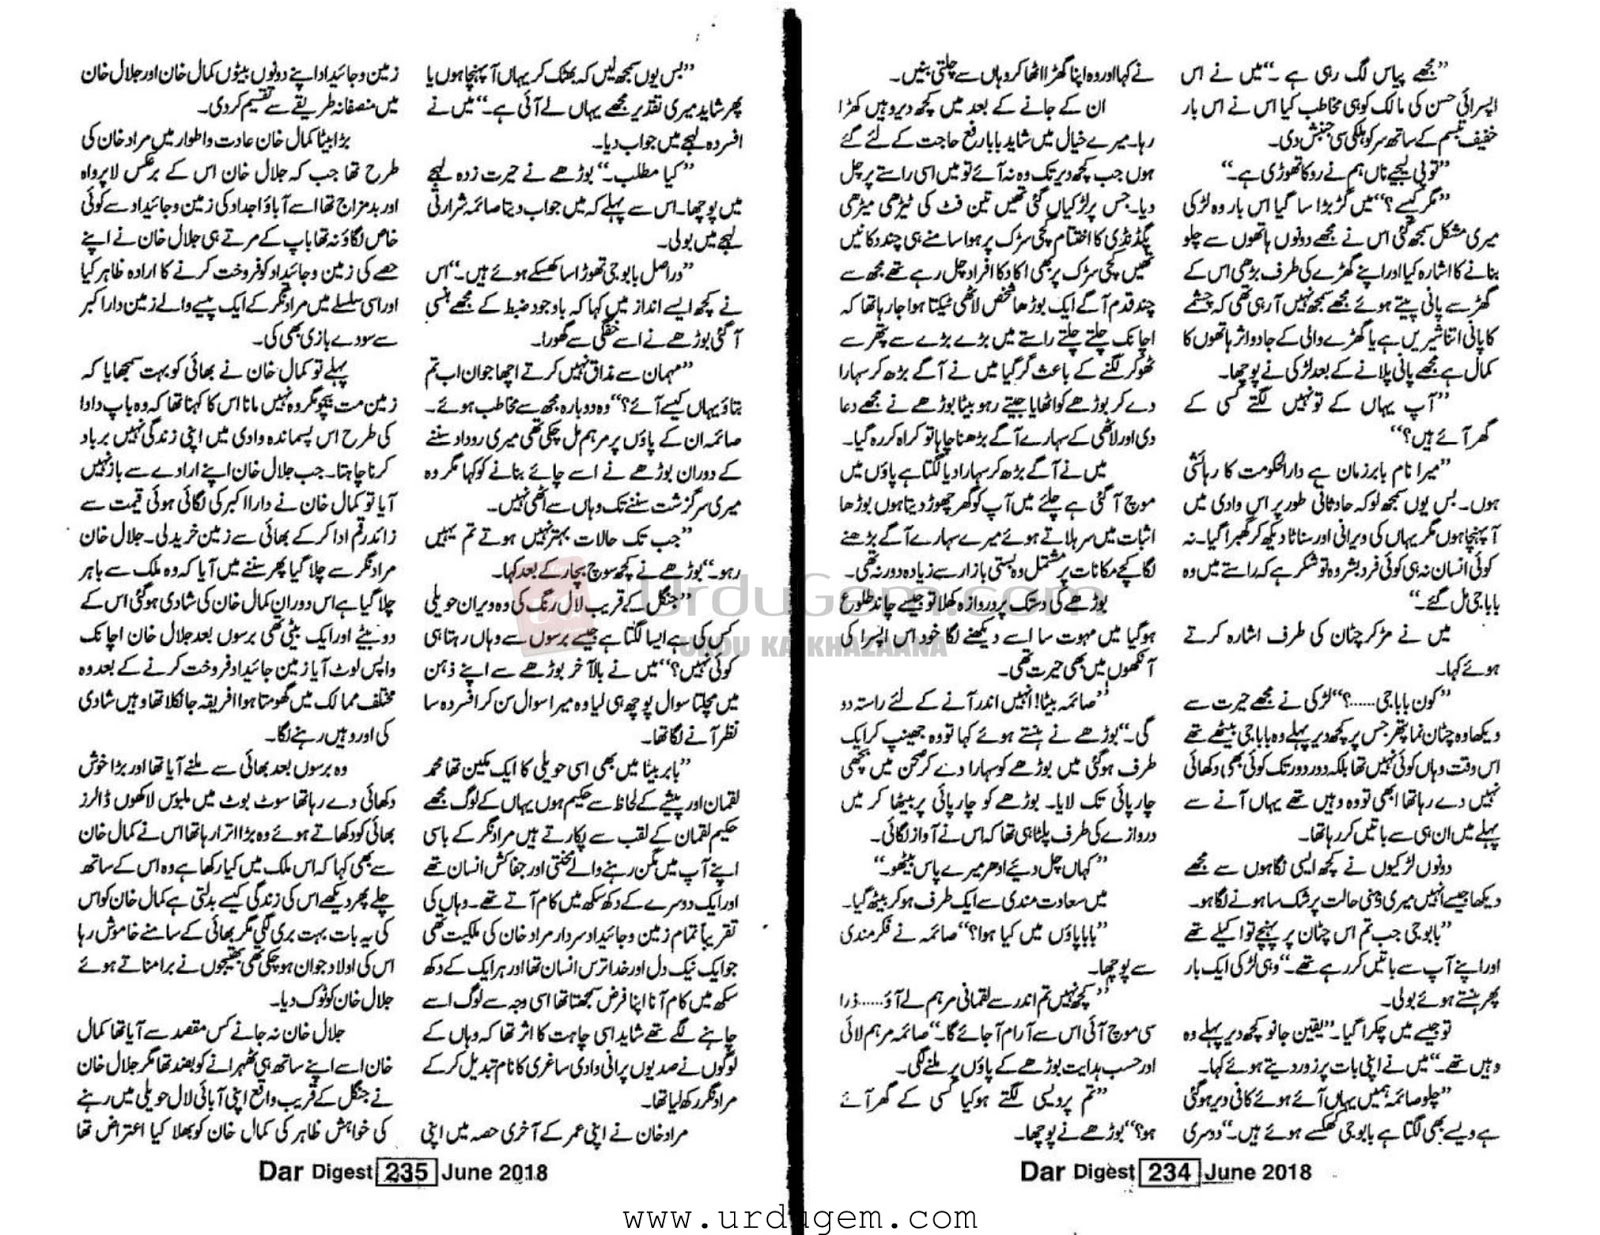 ”مجھے پیاس لگ رہی ہے۔“ میں نے اس
اپسرائی حسن کی مالک کو ہی مخاطب کیا اس نے اس بار
خفیف تبسم کے ساتھ سر کو ہلکی سی جنبش دی۔
”تو پی لیجیے ناں ہم نے روکا تھوڑی ہے۔“
”مگر کیسے؟“ میں گڑبڑا سا گیا اس بار وہ لڑکی
میری مشکل سمجھ گئی اس نے مجھے دونوں ہاتھوں سے چلو
بنانے کا اشارہ کیا اور اپنے گھڑے کی طرف بڑھی اس کے
گھڑے سے پانی پیتے ہوئے مجھے سمجھ نہیں آ رہی تھی کہ چشمے
کا پانی اتنا شیریں ہے یا گھڑے والی کے جادو اثر ہاتھوں کا
کمال ہے مجھے پانی پلانے کے بعد لڑکی نے پوچھا۔
”آپ یہاں کے تو نہیں لگتے کسی کے
گھر آئے ہیں؟“
”میرا نام بابر زمان ہے دارالحکومت کا رہائشی
ہوں۔ بس یوں سمجھ لو کہ حادثاتی طور پر اس وادی میں
آ پہنچا ہوں مگر یہاں کی ویرانی اور سناٹا دیکھ کر گھبرا گیا۔ نہ
کوئی انسان نہ ہی کوئی فرد بشر وہ تو شکر ہے کہ راستے میں وہ
بابا جی مل گئے۔“
میں نے مڑ کر چٹان کی طرف اشارہ کرتے
ہوئے کہا۔
”کون بابا جی......؟“ لڑکی نے مجھے حیرت سے
دیکھا وہ چٹان نما پتھر جس پر کچھ دیر پہلے وہ بابا جی بیٹھے تھے
اس وقت وہاں کوئی نہیں تھا بلکہ دور دور تک کوئی بھی دکھائی
نہیں دے رہا تھا ابھی تو وہ وہیں تھے یہاں آنے سے
پہلے میں ان ہی سے باتیں کر رہا تھا۔
دونوں لڑکیوں نے کچھ ایسی نگاہوں سے مجھے
دیکھا جیسے انہیں میری ذہنی حالت پر شک سا ہونے لگا ہو۔
”بابو جی جب تم اس چٹان پر پہنچے تو اکیلے تھے
اور اپنے آپ سے باتیں کر رہے تھے۔“ وہی لڑکی ایک بار
پھر ہنستے ہوئے بولی۔
تو جیسے میں چکرا گیا۔ ”یقین جانو کچھ دیر پہلے وہ
وہیں تھے۔“ میں نے اپنی بات پر زور دیتے ہوئے کہا۔
”چلو صائمہ ہمیں یہاں آئے ہوئے کافی دیر ہو گئی
ہے ویسے بھی لگتا ہے بابو جی کھسکے ہوئے ہیں۔“ دوسری
نے کہا اور وہ اپنا گھڑا اٹھا کر وہاں سے چلتی بنیں۔
ان کے جانے کے بعد میں کچھ دیر وہیں کھڑا
رہا۔ میرے خیال میں شاید بابا رفع حاجت کے لئے گئے
ہوں جب کچھ دیر تک وہ نہ آئے تو میں اسی راستے پر چل
دیا۔ جس پر لڑکیاں گئی تھیں تین فٹ کی ٹیڑھی میڑھی
پگڈنڈی کا اختتام کچی سڑک پر ہوا سامنے ہی چند دکانیں
تھیں کچی سڑک پر بھی اکا دکا افراد چل رہے تھے مجھ سے
چند قدم آگے ایک بوڑھا شخص لاٹھی ٹیکتا ہوا جا رہا تھا کہ
اچانک چلتے چلتے راستے میں بڑے بڑے سے پتھر سے
ٹھوکر لگنے کے باعث گر گیا میں نے آگے بڑھ کر سہارا
دے کر بوڑھے کو اٹھایا جیتے رہو بیٹا بوڑھے نے مجھے دعا
دی اور لاٹھی کے سہارے آگے بڑھنا چاہا تو کراہ کر رہ گیا۔
میں نے آگے بڑھ کر سہارا دیا لگتا ہے پاؤں میں
موچ آ گئی ہے چلئے میں آپ کو گھر چھوڑ دیتا ہوں بوڑھا
اثبات میں سر ہلاتے ہوئے میرے سہارے آگے بڑھنے
لگا کچے مکانات پر مشتمل وہ بستی بازار سے زیادہ دور نہ تھی۔
بوڑھے کی دستک پر دروازہ کھلا تو جیسے چاند طلوع
ہو گیا میں مبہوت سا اسے دیکھنے لگا خود اس اپسرا کی
آنکھوں میں بھی حیرت تھی۔
”صائمہ بیٹا! انہیں اندر آنے کے لئے راستہ دو
گی۔“ بوڑھے نے ہنستے ہوئے کہا تو وہ جھینپ کر ایک
طرف ہو گئی میں بوڑھے کو سہارا دے کر صحن میں بچھی
چارپائی تک لایا۔ بوڑھے کو چارپائی پر بیٹھا کر میں
دروازے کی طرف پلٹا ہی تھا کہ اس نے آواز لگائی۔
”کہاں چل دیئے ادھر میرے پاس بیٹھو۔“
میں سعادت مندی سے ایک طرف ہو کر بیٹھ گیا۔
”بابا پاؤں میں کیا ہوا؟“ صائمہ نے فکر مندی
سے پوچھا۔
”کچھ نہیں تم اندر سے لقمانی مرہم لے آؤ...... ذرا
سی موچ آئی اس سے آرام آ جائے گا۔“ صائمہ مرہم لائی
اور حسب ہدایت بوڑھے کے پاؤں پر ملنے لگی۔
”تم پردیسی لگتے ہو کیا کسی کے گھر آئے
ہو؟“ بوڑھے نے پوچھا۔
Dar Digest 234 June 2018
”بس یوں سمجھ لیں کہ بھٹک کر یہاں آ پہنچا ہوں یا
پھر شاید میری تقدیر مجھے یہاں لے آئی ہے۔“ میں نے
افسردہ لہجے میں جواب دیا۔
”کیا مطلب۔“ بوڑھے نے حیرت زدہ لہجے
میں پوچھا۔ اس سے پہلے کہ میں جواب دیتا صائمہ شرارتی
لہجے میں بولی۔
”دراصل بابو جی تھوڑا سا کھسکے ہوئے ہیں۔“ اس
نے کچھ ایسے انداز میں کہا کہ باوجود ضبط کے مجھے ہنسی
آ گئی بوڑھے نے اسے خفگی سے گھورا۔
”مہمان سے مذاق نہیں کرتے اچھا جوان اب تم
بتاؤ یہاں کیسے آئے؟“ وہ دوبارہ مجھ سے مخاطب ہوئے۔
صائمہ ان کے پاؤں پر مرہم مل چکی تھی میری روداد سننے
کے دوران بوڑھے نے اسے چائے بنانے کو کہا مگر وہ
میری سرگزشت سننے تک وہاں سے اٹھی نہیں۔
”جب تک حالات بہتر نہیں ہوتے تم یہیں
رہو۔“ بوڑھے نے کچھ سوچ بچار کے بعد کہا۔
”جنگل کے قریب لال رنگ کی وہ ویران حویلی
کس کی ہے ایسا لگتا ہے جیسے برسوں سے وہاں رہتا ہی
کوئی نہیں؟“ میں نے بالآخر بوڑھے سے اپنے ذہن
میں مچلتا سوال پوچھ ہی لیا وہ میرا سوال سن کر افسردہ سا
نظر آنے لگا تھا۔
”بابر بیٹا میں بھی اسی حویلی کا ایک مکین تھا محمد
لقمان اور پیشے کے لحاظ سے حکیم ہوں یہاں کے لوگ مجھے
حکیم لقمان کے لقب سے پکارتے ہیں مراد نگر کے باسی
اپنے آپ میں مگن رہنے والے محنتی اور جفاکش انسان تھے
اور ایک دوسرے کے دکھ سکھ میں کام آتے تھے۔ وہاں کی
تقریباً تمام زمین و جائیداد سردار مراد خان کی ملکیت تھی
جو ایک نیک دل اور خدا ترس انسان تھا اور ہر ایک کے دکھ
سکھ میں کام آنا اپنا فرض سمجھتا تھا اسی وجہ سے لوگ اسے
چاہنے لگے تھے شاید اسی چاہت کا اثر تھا کہ وہاں کے
لوگوں نے صدیوں پرانی وادی ساغری کا نام تبدیل کر کے
مراد نگر رکھ لیا تھا۔
مراد خان نے اپنی عمر کے آخری حصہ میں اپنی
زمین و جائیداد اپنے دونوں بیٹوں کمال خان اور جلال خان
میں منصفانہ طریقے سے تقسیم کر دی۔
بڑا بیٹا کمال خان عادت و اطوار میں مراد خان کی
طرح تھا جب کہ جلال خان اس کے برعکس لاپرواہ
اور بدمزاج تھا اسے آباؤ اجداد کی زمین و جائیداد سے کوئی
خاص لگاؤ نہ تھا باپ کے مرتے ہی جلال خان نے اپنے
حصے کی زمین و جائیداد کو فروخت کرنے کا ارادہ ظاہر کیا
اور اسی سلسلے میں مراد نگر کے ایک پیسے والے زمین دار اکبر
سے سودے بازی بھی کی۔
پہلے تو کمال خان نے بھائی کو بہت سمجھایا کہ
زمین مت بیچو مگر وہ نہیں مانا اس کا کہنا تھا کہ وہ باپ دادا
کی طرح اس پسماندہ وادی میں اپنی زندگی نہیں برباد
کرنا چاہتا۔ جب جلال خان اپنے ارادے سے باز نہیں
آیا تو کمال خان نے دارا اکبر کی لگائی ہوئی قیمت سے
زائد رقم ادا کر کے بھائی سے زمین خرید لی۔ جلال خان
مراد نگر سے چلا گیا پھر سننے میں آیا کہ وہ ملک سے باہر
چلا گیا ہے اس دوران کمال خان کی شادی ہو گئی اس کے
دو بیٹے اور ایک بیٹی تھی برسوں بعد جلال خان اچانک
واپس لوٹ آیا زمین جائیداد فروخت کرنے کے بعد وہ
مختلف ممالک میں گھومتا ہوا افریقہ جا نکلا تھا وہیں شادی
کی اور وہیں رہنے لگا۔
وہ برسوں بعد بھائی سے ملنے آیا تھا اور بڑا خوش
دکھائی دے رہا تھا سوٹ بوٹ میں ملبوس لاکھوں ڈالرز
بھائی کو دکھاتے ہوئے وہ بڑا اترا رہا تھا اس نے کمال خان
سے بھی کہا کہ اس ملک میں کیا رکھا ہے وہ اس کے ساتھ
چلے پھر دیکھے اس کی زندگی کیسے بدلتی ہے کمال خان کو اس
کی یہ بات بہت بری لگی مگر بھائی کے سامنے خاموش رہا
اس کی اولاد جوان ہو چکی تھی بھتیجوں نے برا مناتے ہوئے
جلال خان کو ٹوک دیا۔
جلال خان نہ جانے کس مقصد سے آیا تھا کمال
خان اسے اپنے ساتھ ہی ٹھہرانے کو بضد تھا مگر جلال خان
نے جنگل کے قریب واقع اپنی آبائی لال حویلی میں رہنے
کی خواہش ظاہر کی کمال خان کو بھلا کیا اعتراض تھا
Dar Digest 235 June 2018
UrduGem.com
URDU KA KHAZAANA
www.urdugem.com